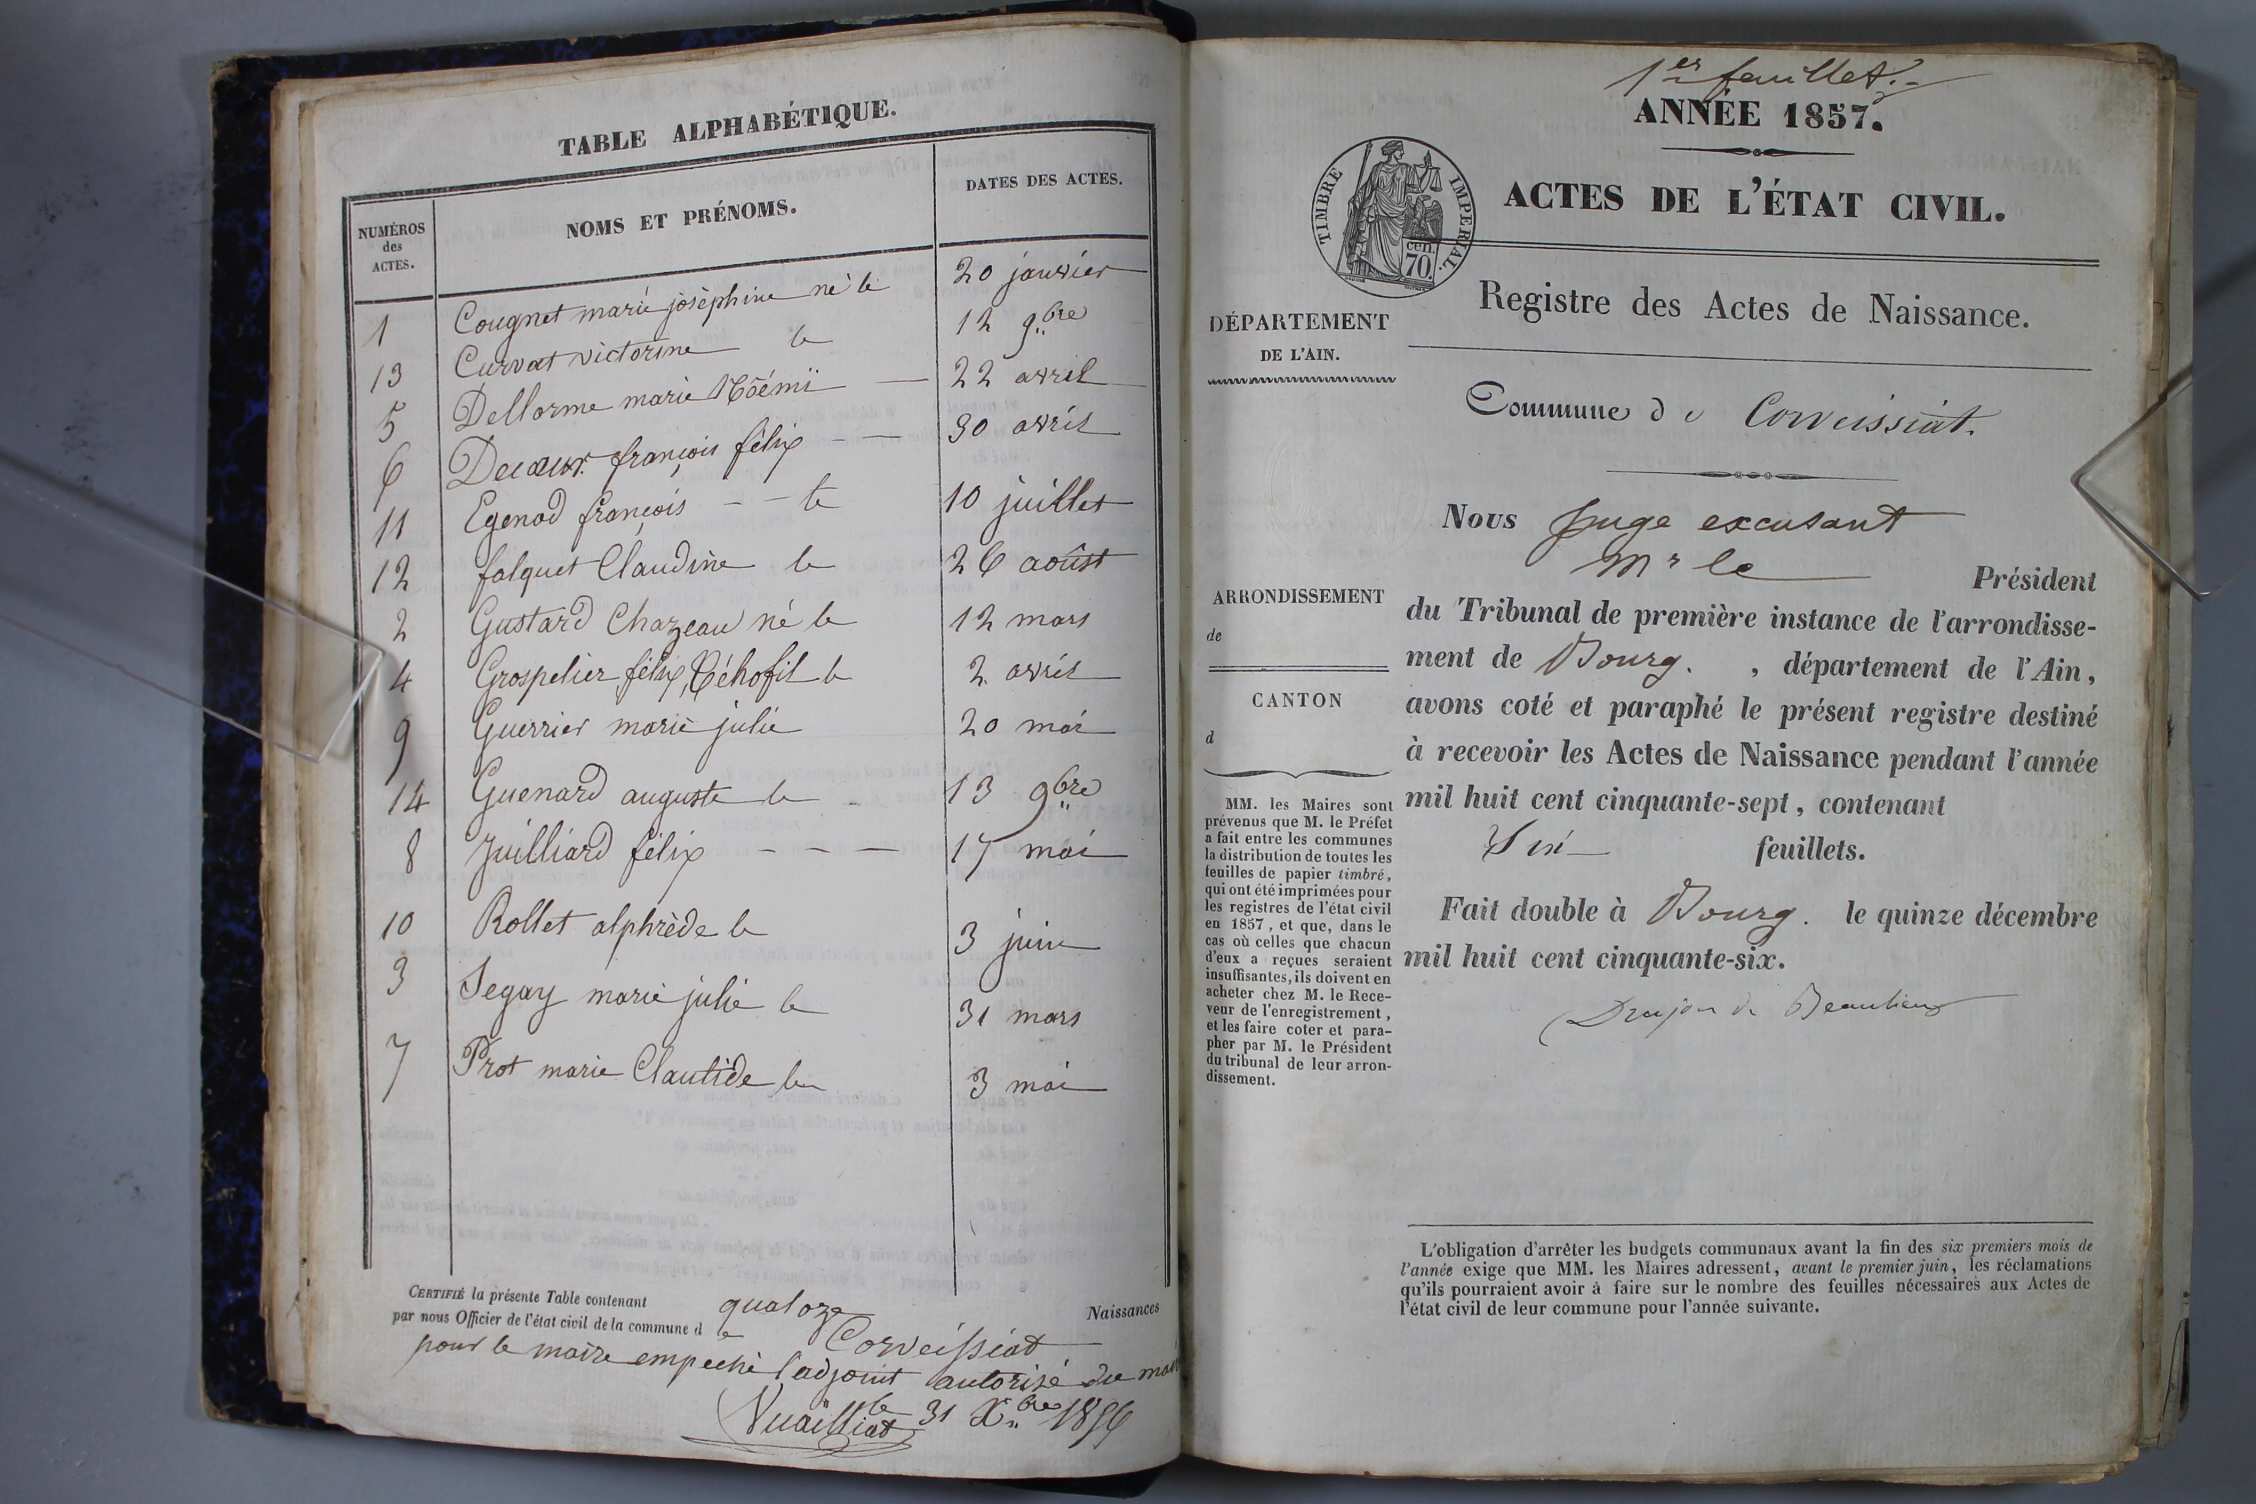 TABLE ALPHABÉTIQUE.
NUMÉROS
des
ACTES.
NOMS ET PRÉNOMS.
DATES DES ACTES.
1 Cougnet marie joséphine né le 20 janvier
13 Curvat victorine le 12 9bre
5 Dellorme marie Nôémï 22 avril
6 Decœur françois félix 30 avril
11 Egenod françois le 10 juillet
12 falquet Claudine le 26 aoûst
2 Gustard Chazeau né le 12 mars
4 Grospelier félix, Téhofil le 2 avril
9 Guerrier marie julie 20 mai
14 Guenard auguste le 13 9bre
8 Juilliard félix 17 mai
10 Rollet alphrède le 3 juin
3 Segay marie julie le 31 mars
7 Prot marie Clautide le 3 mai
CERTIFIÉ la présente Table contenant quatoze Naissances
par nous Officier de l'état civil de la commune de Corveissiat
pour le maire empeché l'adjoint autorisé du mai
le 31 Xbre 1856
Vuailliat
1er feuillet.
ANNÉE 1857.
ACTES DE L'ÉTAT CIVIL.
TIMBRE IMPERIAL.
cen.
70.
Registre des Actes de Naissance.
DÉPARTEMENT
DE L'AIN.
Commune de Corveissiat.
Nous Juge excusant
Mr le Président
ARRONDISSEMENT
de
du Tribunal de première instance de l'arrondisse-
ment de Bourg. , département de l'Ain,
CANTON
d
avons coté et paraphé le présent registre destiné
à recevoir les Actes de Naissance pendant l'année
mil huit cent cinquante-sept, contenant
Six feuillets.
Fait double à Bourg. le quinze décembre
mil huit cent cinquante-six.
Beaulieu
MM. les Maires sont
prévenus que M. le Préfet
a fait entre les communes
la distribution de toutes les
feuilles de papier timbré,
qui ont été imprimées pour
les registres de l'état civil
en 1857, et que, dans le
cas où celles que chacun
d'eux a reçues seraient
insuffisantes, ils doivent en
acheter chez M. le Rece-
veur de l'enregistrement,
et les faire coter et para-
pher par M. le Président
du tribunal de leur arron-
dissement.
L'obligation d'arrêter les budgets communaux avant la fin des six premiers mois de
l'année exige que MM. les Maires adressent, avant le premier juin, les réclamations
qu'ils pourraient avoir à faire sur le nombre des feuilles nécessaires aux Actes de
l'état civil de leur commune pour l'année suivante.